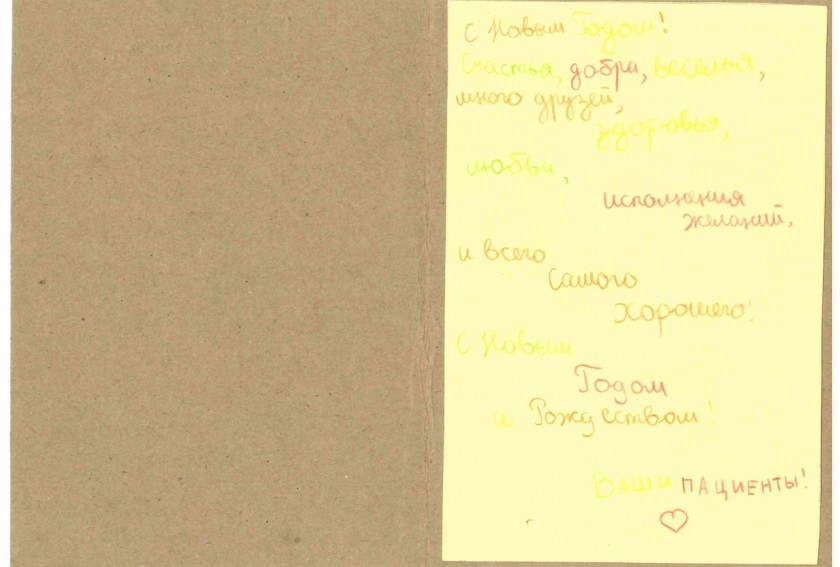 С Новым Годом!
Счастья, добра, веселья,
много друзей,
здоровья,
любви,
исполнения
желаний,
и всего
самого
хорошего!
С Новым
Годом
и Рождеством!
Ваши ПАЦИЕНТЫ!